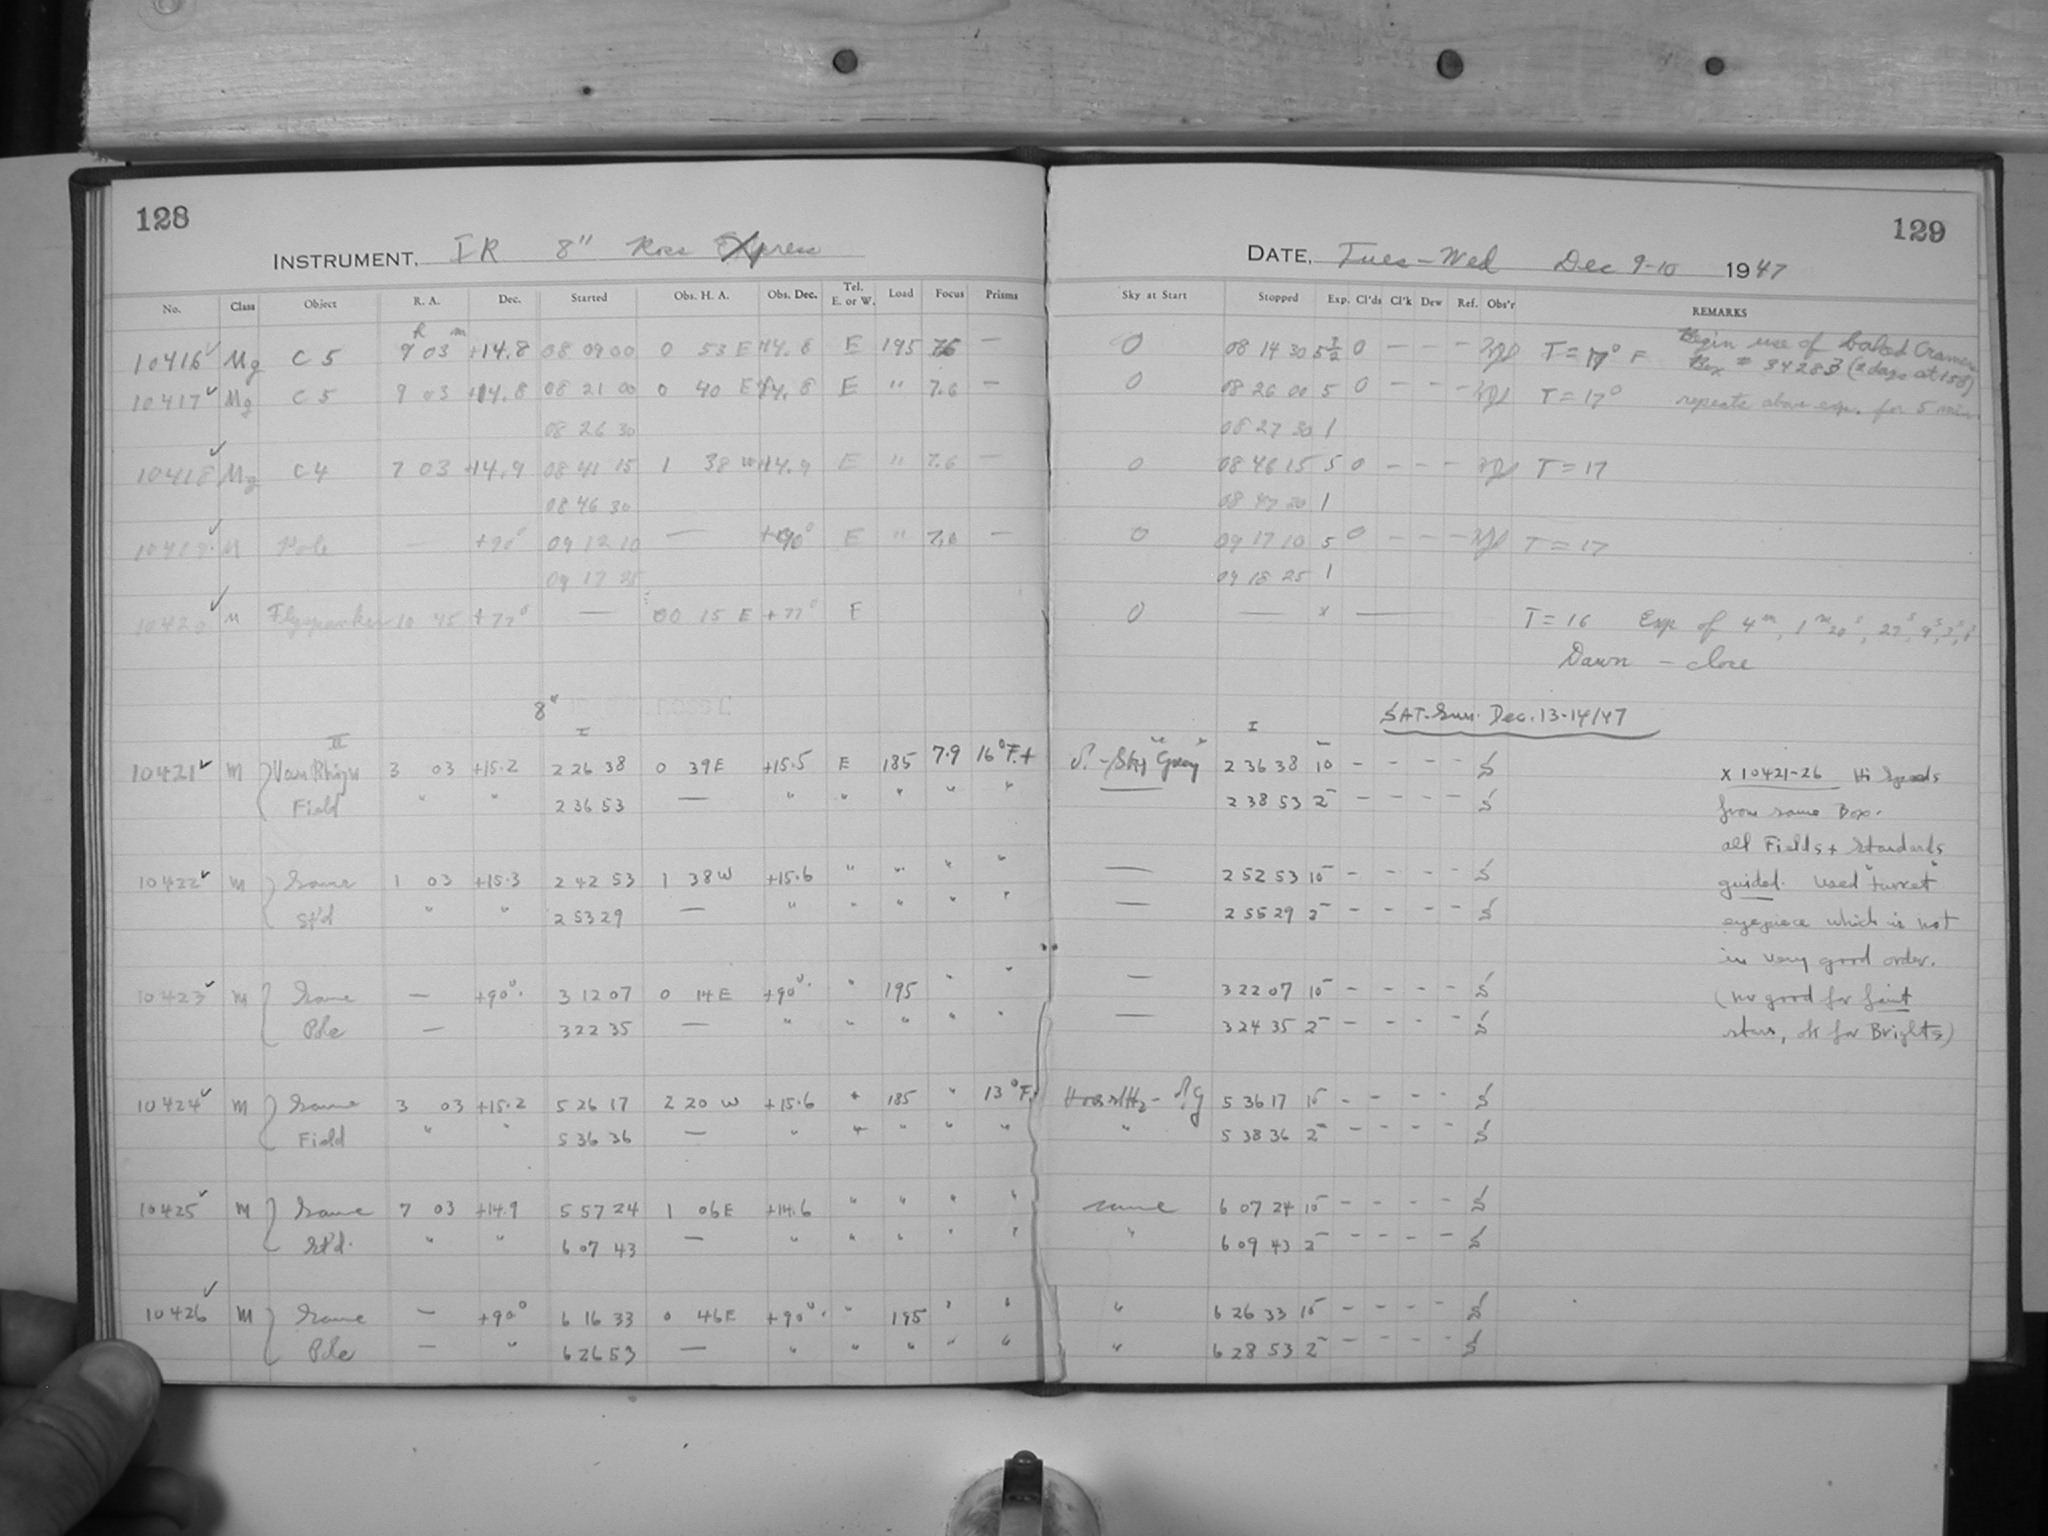 128
129
INSTRUMENT, IR 8" Ross Express
DATE, Tues-Wed Dec 9-10 1947
No. Class Object R. A. Dec. Started Obs. H. A. Obs. Dec. Tel. E. or W. Load Focus Prisms Sky at Start Stopped Exp. Cl'ds Cl'k Dew Ref. Obs'r REMARKS
h m
10416 Mg C 5 9 03 +14.8 08 09 00 0 53 E +14.8 E 195 7.6 — 0 08 14 30 5 1/2 0 — — — T = 17° F Begin use of baked Cramers
Box # 34283 (2 days at 158)
10417 Mg C 5 9 03 +14.8 08 21 00 0 40 E +14.8 E " 7.6 — 0 08 26 00 5 0 — — — T = 17° repeats above exp. for 5 min.
08 26 30 08 27 30 1
10418 Mg C 4 7 03 +14.9 08 41 15 1 38 W +14.9 E " 7.6 — 0 08 46 15 5 0 — — — T = 17
08 46 30 08 47 30 1
10419 M Pole — +90° 09 12 10 — +90° E " 7.6 — 0 09 17 10 5 0 — — — T = 17
09 17 25 09 18 25 1
10420 M 10 45 +77° — 00 15 E +77° E 0 — x — T = 16 Exp of 4m, 1m 20s, 27s, 9s, 3s, 1s
Dawn — close
8" SAT-Sun. Dec. 13-14/47
II I I
10421 M Van Rhijn 3 03 +15.2 2 26 38 0 39E +15.5 E 185 7.9 16°F.+ Sky "Grey" 2 36 38 10 - - - - S x 10421-26 Hi Speeds
Field " " 2 36 53 — " " " " " 2 38 53 2 - - - - S from same Box.
all Fields + Standards
10422 M Same 1 03 +15.3 2 42 53 1 38W +15.6 " " " " — 2 52 53 10 - - - - S guided. Used "turret"
St'd " " 2 53 29 — " " " " " — 2 55 29 2 - - - - S eyepiece which is not
in very good order.
10423 M Same — +90°. 3 12 07 0 14E +90°. " 195 " " — 3 22 07 10 - - - - S (no good for faint
Pole — 3 22 35 — " " " " " — 3 24 35 2 - - - - S stars, ok for Brights)
10424 M Same 3 03 +15.2 5 26 17 2 20 W +15.6 " 185 " 13°F. 5 36 17 10 - - - - S
Field " " 5 36 36 — " " " " " " 5 38 36 2 - - - - S
10425 M Same 7 03 +14.9 5 57 24 1 06E +14.6 " " " " same 6 07 24 10 - - - - S
St'd. " " 6 07 43 — " " " " " " 6 09 43 2 - - - - S
10426 M Same — +90° 6 16 33 0 46E +90°. " 195 " " " 6 26 33 10 - - - - S
Pole — " 6 26 53 — " " " " " " 6 28 53 2 - - - - S